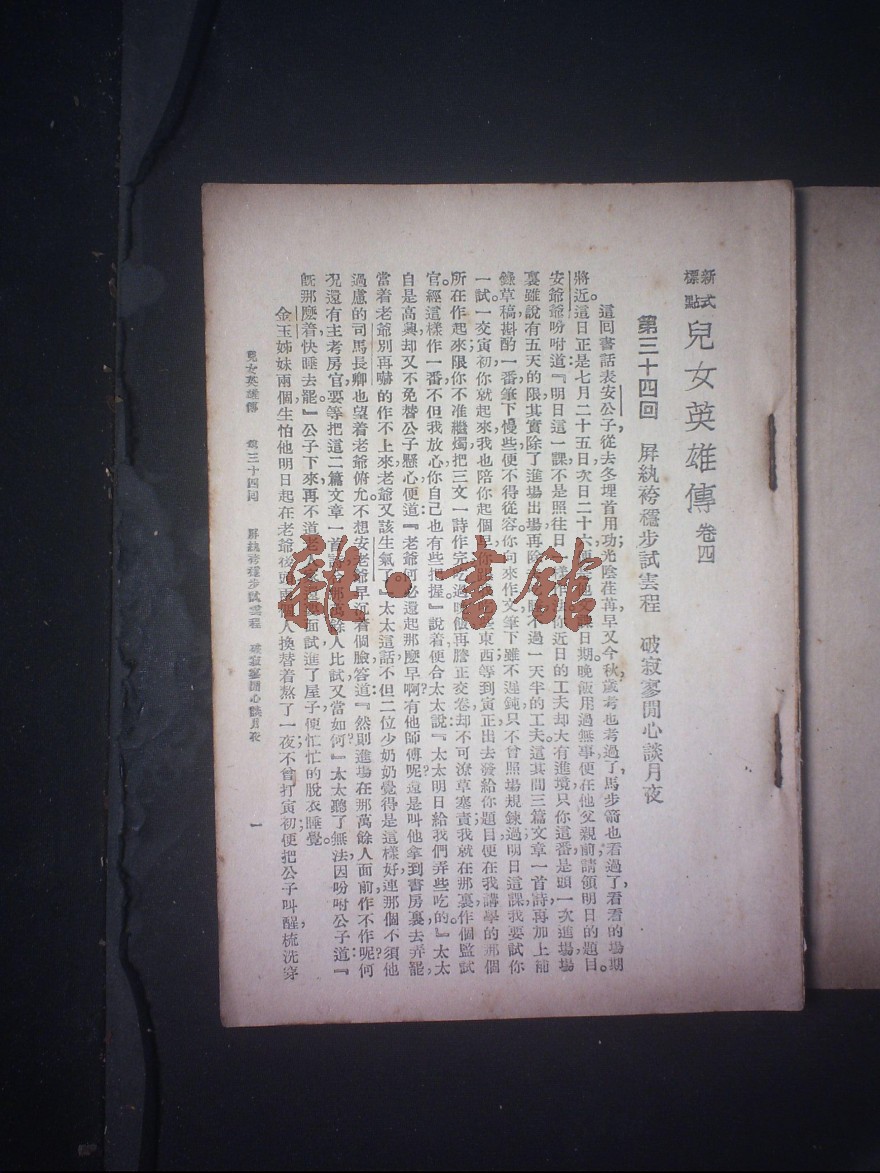 新式標點 兒女英雄傳 卷四
第三十四回 屏紈袴穩步試雲程 破寂寥閒心談月夜
這回書話表安公子從去冬埋首用功光陰荏苒早又今秋歲考也考過了馬步箭也看過了看看的場期
將近這日正是七月二十五日次日二十六日期晚飯用過無事便在他父親前請領明日的題目
安爺爺吩咐道『明日這一課不是照往日你近日的工夫却大有進境只你這番是頭一次進場場
裏雖說有五天的限其實除了進場出場再除不過一天半的工夫這其間三篇文章一首詩再加上補
錄草稿斟酌一番筆下慢些便不得從容你向來作文筆下雖不遲鈍只不曾照場規鍊過明日這課我要試你
一試一交寅初你就起來我也陪你起個早你跟東西等到寅正出去發給你題目便在我講學的那個
所在作起來限你不准繼燭把三文一詩作完吃過晚飯再謄正交卷却不可潦草塞責我就在那裏作個監試
官經這樣作一番不但我放心你自己也有些把握』說着便合太太說『太太明日給我們弄些吃的』太太
自是高興却又不免替公子懸心便道『老爺何必還起那麼早啊有他師傅呢還是叫他拿到書房裏去弄罷
當着老爺別再嚇的作不上來老爺又該生氣了』太太這話不但二位少奶奶覺得是這樣好連那個不須他
過慮的司馬長卿也望着老爺俯允不想安老爺早沉着個臉答道『然則進場在那萬餘人面前作不作呢何
况還有主考房官要等把這三篇文章一首詩那萬餘人比試又當如何』太太聽了無法因吩咐公子道『
旣那麼着快睡去罷』公子下來再不道老人面試進了屋子便忙忙的脫衣睡覺
金玉姊妹兩個生怕他明日起在老爺後頭兩個人換替着熬了一夜不曾打寅初便把公子叫醒梳洗穿
兒女英雄傳 第三十四回 屏紈袴穩步試雲程 破寂寥閒心談月夜 一
雜·書館